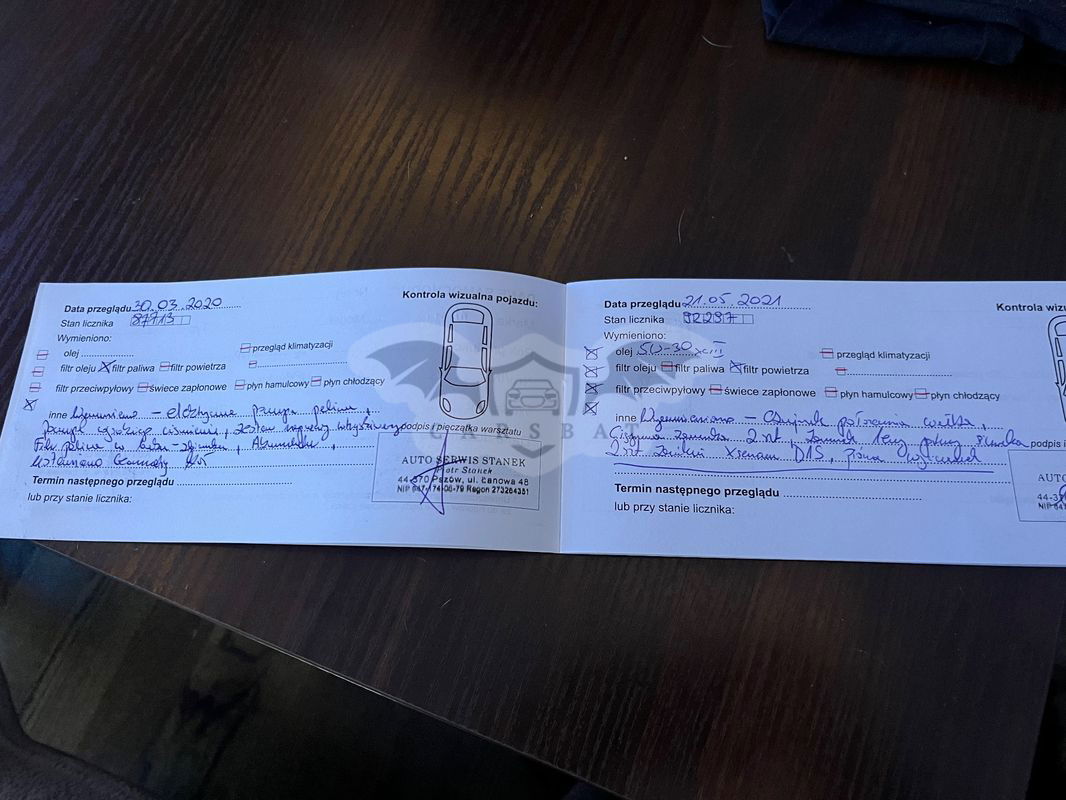 Data przeglądu 30.03.2020
Kontrola wizualna pojazdu:
Stan licznika 87713
Wymieniono:
olej
przegląd klimatyzacji
filtr oleju filtr paliwa filtr powietrza
filtr przeciwpyłowy świece zapłonowe płyn hamulcowy płyn chłodzący
inne Wymieniono - elektryczna pompa paliwa,
pompę wysokiego ciśnienia, zestaw naprawczy
podpis i pieczątka warsztatu
Filtr paliwa w
Termin następnego przeglądu
lub przy stanie licznika:
AUTO SERWIS STANEK
Piotr Stanek
44-370 Pszów, ul. Łanowa 48
NIP 647-174-06-79 Regon 273264351
CARSBAT
Data przeglądu 21.05.2021
Kontrola wizu
Stan licznika 92297
Wymieniono:
olej 5W-30
przegląd klimatyzacji
filtr oleju filtr paliwa filtr powietrza
filtr przeciwpyłowy świece zapłonowe płyn hamulcowy płyn chłodzący
inne Wymieniono - Czujnik położenia wałka,
2 szt, lewy
podpis i
2 szt. Xenon D1S, pióra wycieraczek
Termin następnego przeglądu
lub przy stanie licznika:
AUTO
44-37
NIP 64